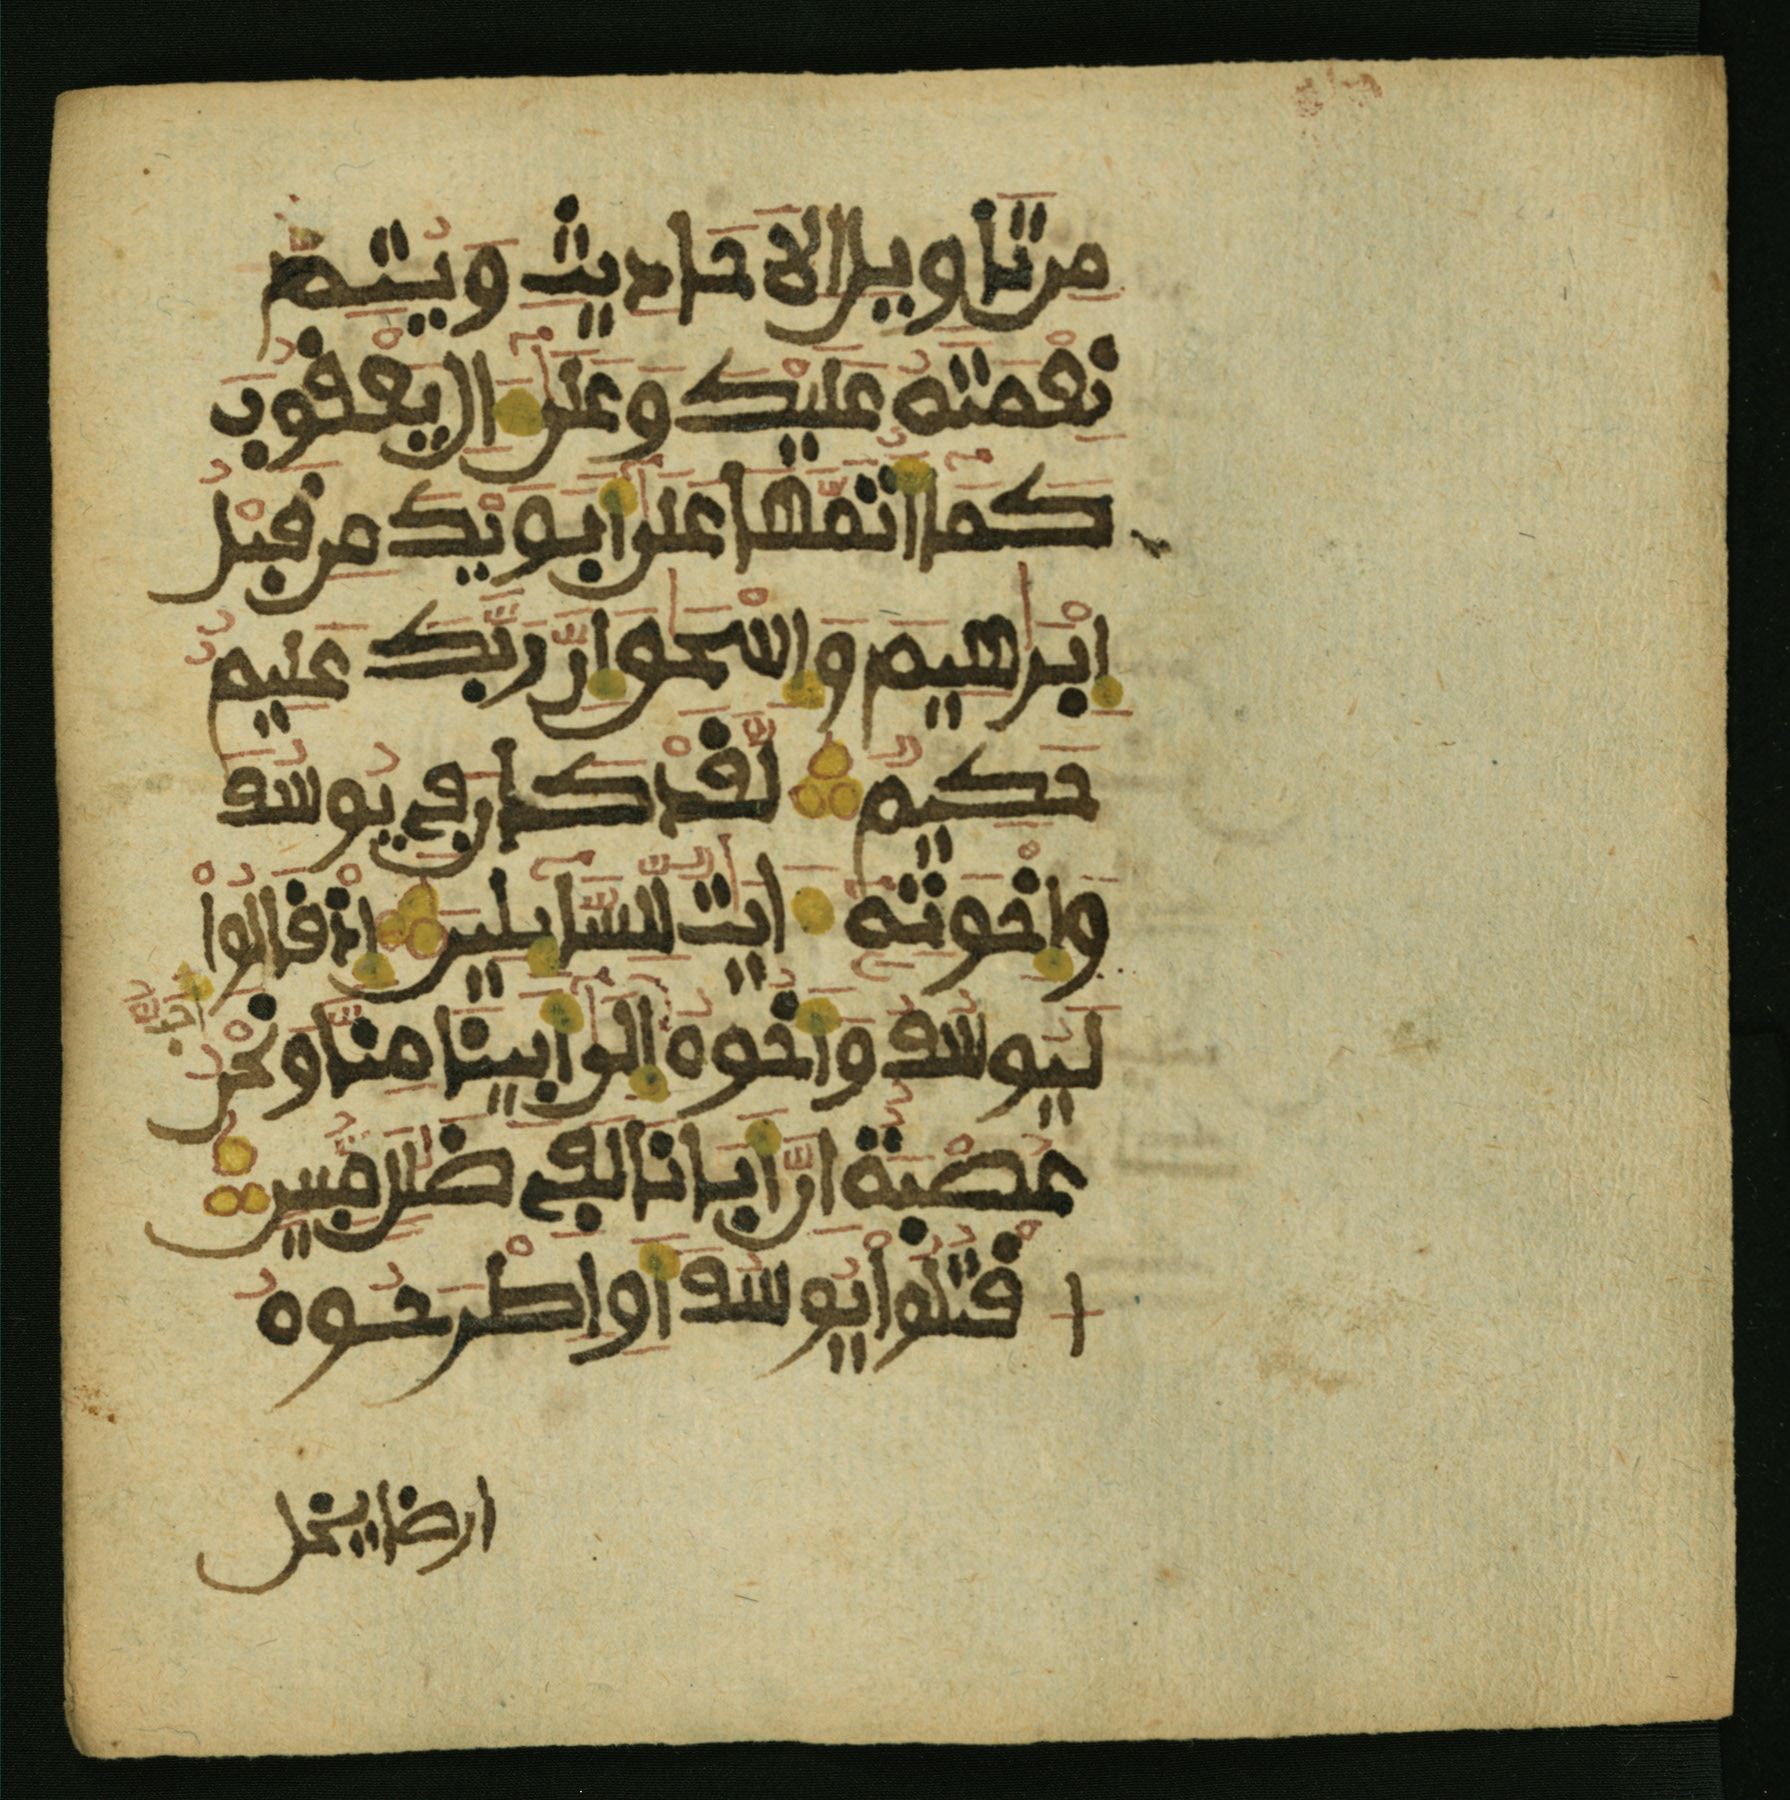 من تاويل الاحاديث ويتم
نعمته عليك وعلى ال يعقوب
كما اتمها على ابويك من قبل
ابرهيم واسحق ان ربك عليم
حكيم لقد كان في يوسف
واخوته ايت للسايلين اذ قالوا
ليوسف واخوه احب الى ابينا منا ونحن
عصبة ان ابانا لفي ضلل مبين
ا قتلوا يوسف او اطرحوه
ارضا يخل